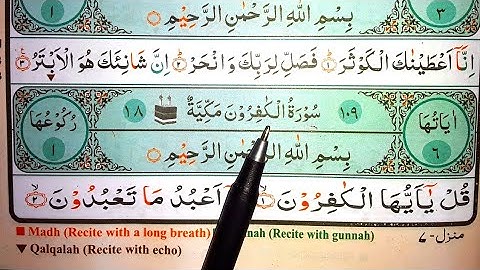 ١ بِسْمِ اللّٰهِ الرَّحْمٰنِ الرَّحِيْمِ ٣
اِنَّاۤ اَعْطَيْنٰكَ الْكَوْثَرَ ۝١ فَصَلِّ لِرَبِّكَ وَانْحَرْ ۝٢ اِنَّ شَانِئَكَ هُوَ الْاَبْتَرُ ۝٣
اٰيَاتُهَا ٦ ١٠٩ سُوْرَةُ الْكٰفِرُوْنَ مَكِّيَّةٌ ١٨ رُكُوْعُهَا ١
بِسْمِ اللّٰهِ الرَّحْمٰنِ الرَّحِيْمِ
قُلْ يٰۤاَيُّهَا الْكٰفِرُوْنَ ۝١ اَعْبُدُ مَا تَعْبُدُوْنَ ۝٢
منزل - ٧
■ Madh (Recite with a long breath) (Recite with gunnah)
▼ Qalqalah (Recite with echo)